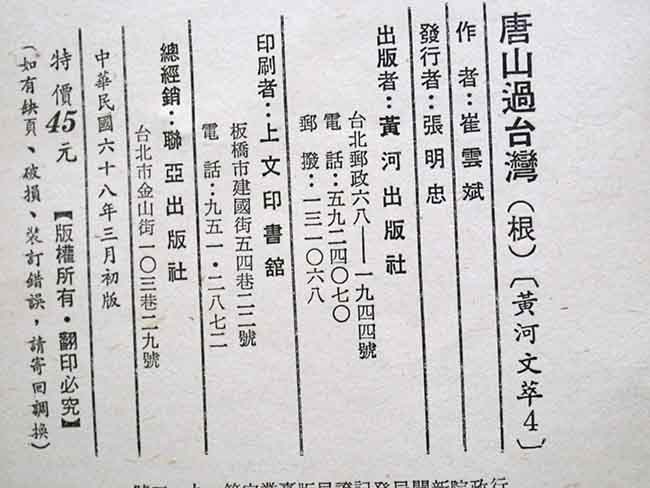 唐山過台灣（根）〔黃河文萃4〕
作者：崔雲斌
發行者：張明忠
出版者：黃河出版社
台北郵政六八——一九四四號
電話：五九二四〇七〇
郵撥：一三一〇六八
印刷者：上文印書館
板橋市建國街五四巷二二號
電話：九五一・二八七二
總經銷：聯亞出版社
台北市金山街一〇三巷二九號
中華民國六十八年三月初版
特價45元【版權所有・翻印必究】
（如有缺頁、破損、裝訂錯誤，請寄回調換）